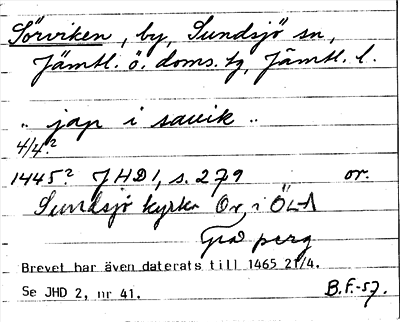 Sörviken, by, Sundsjö sn,
Jämtl. ö. doms. tg, Jämtl. l.
.. jap i sauik ..
4/4?
1445? JHD 1, s. 279 or.
Sundsjö kyrka Or, i ÖLA
perg
Brevet har även daterats till 1465 21/4.
Se JHD 2, nr 41. B.F.-57.